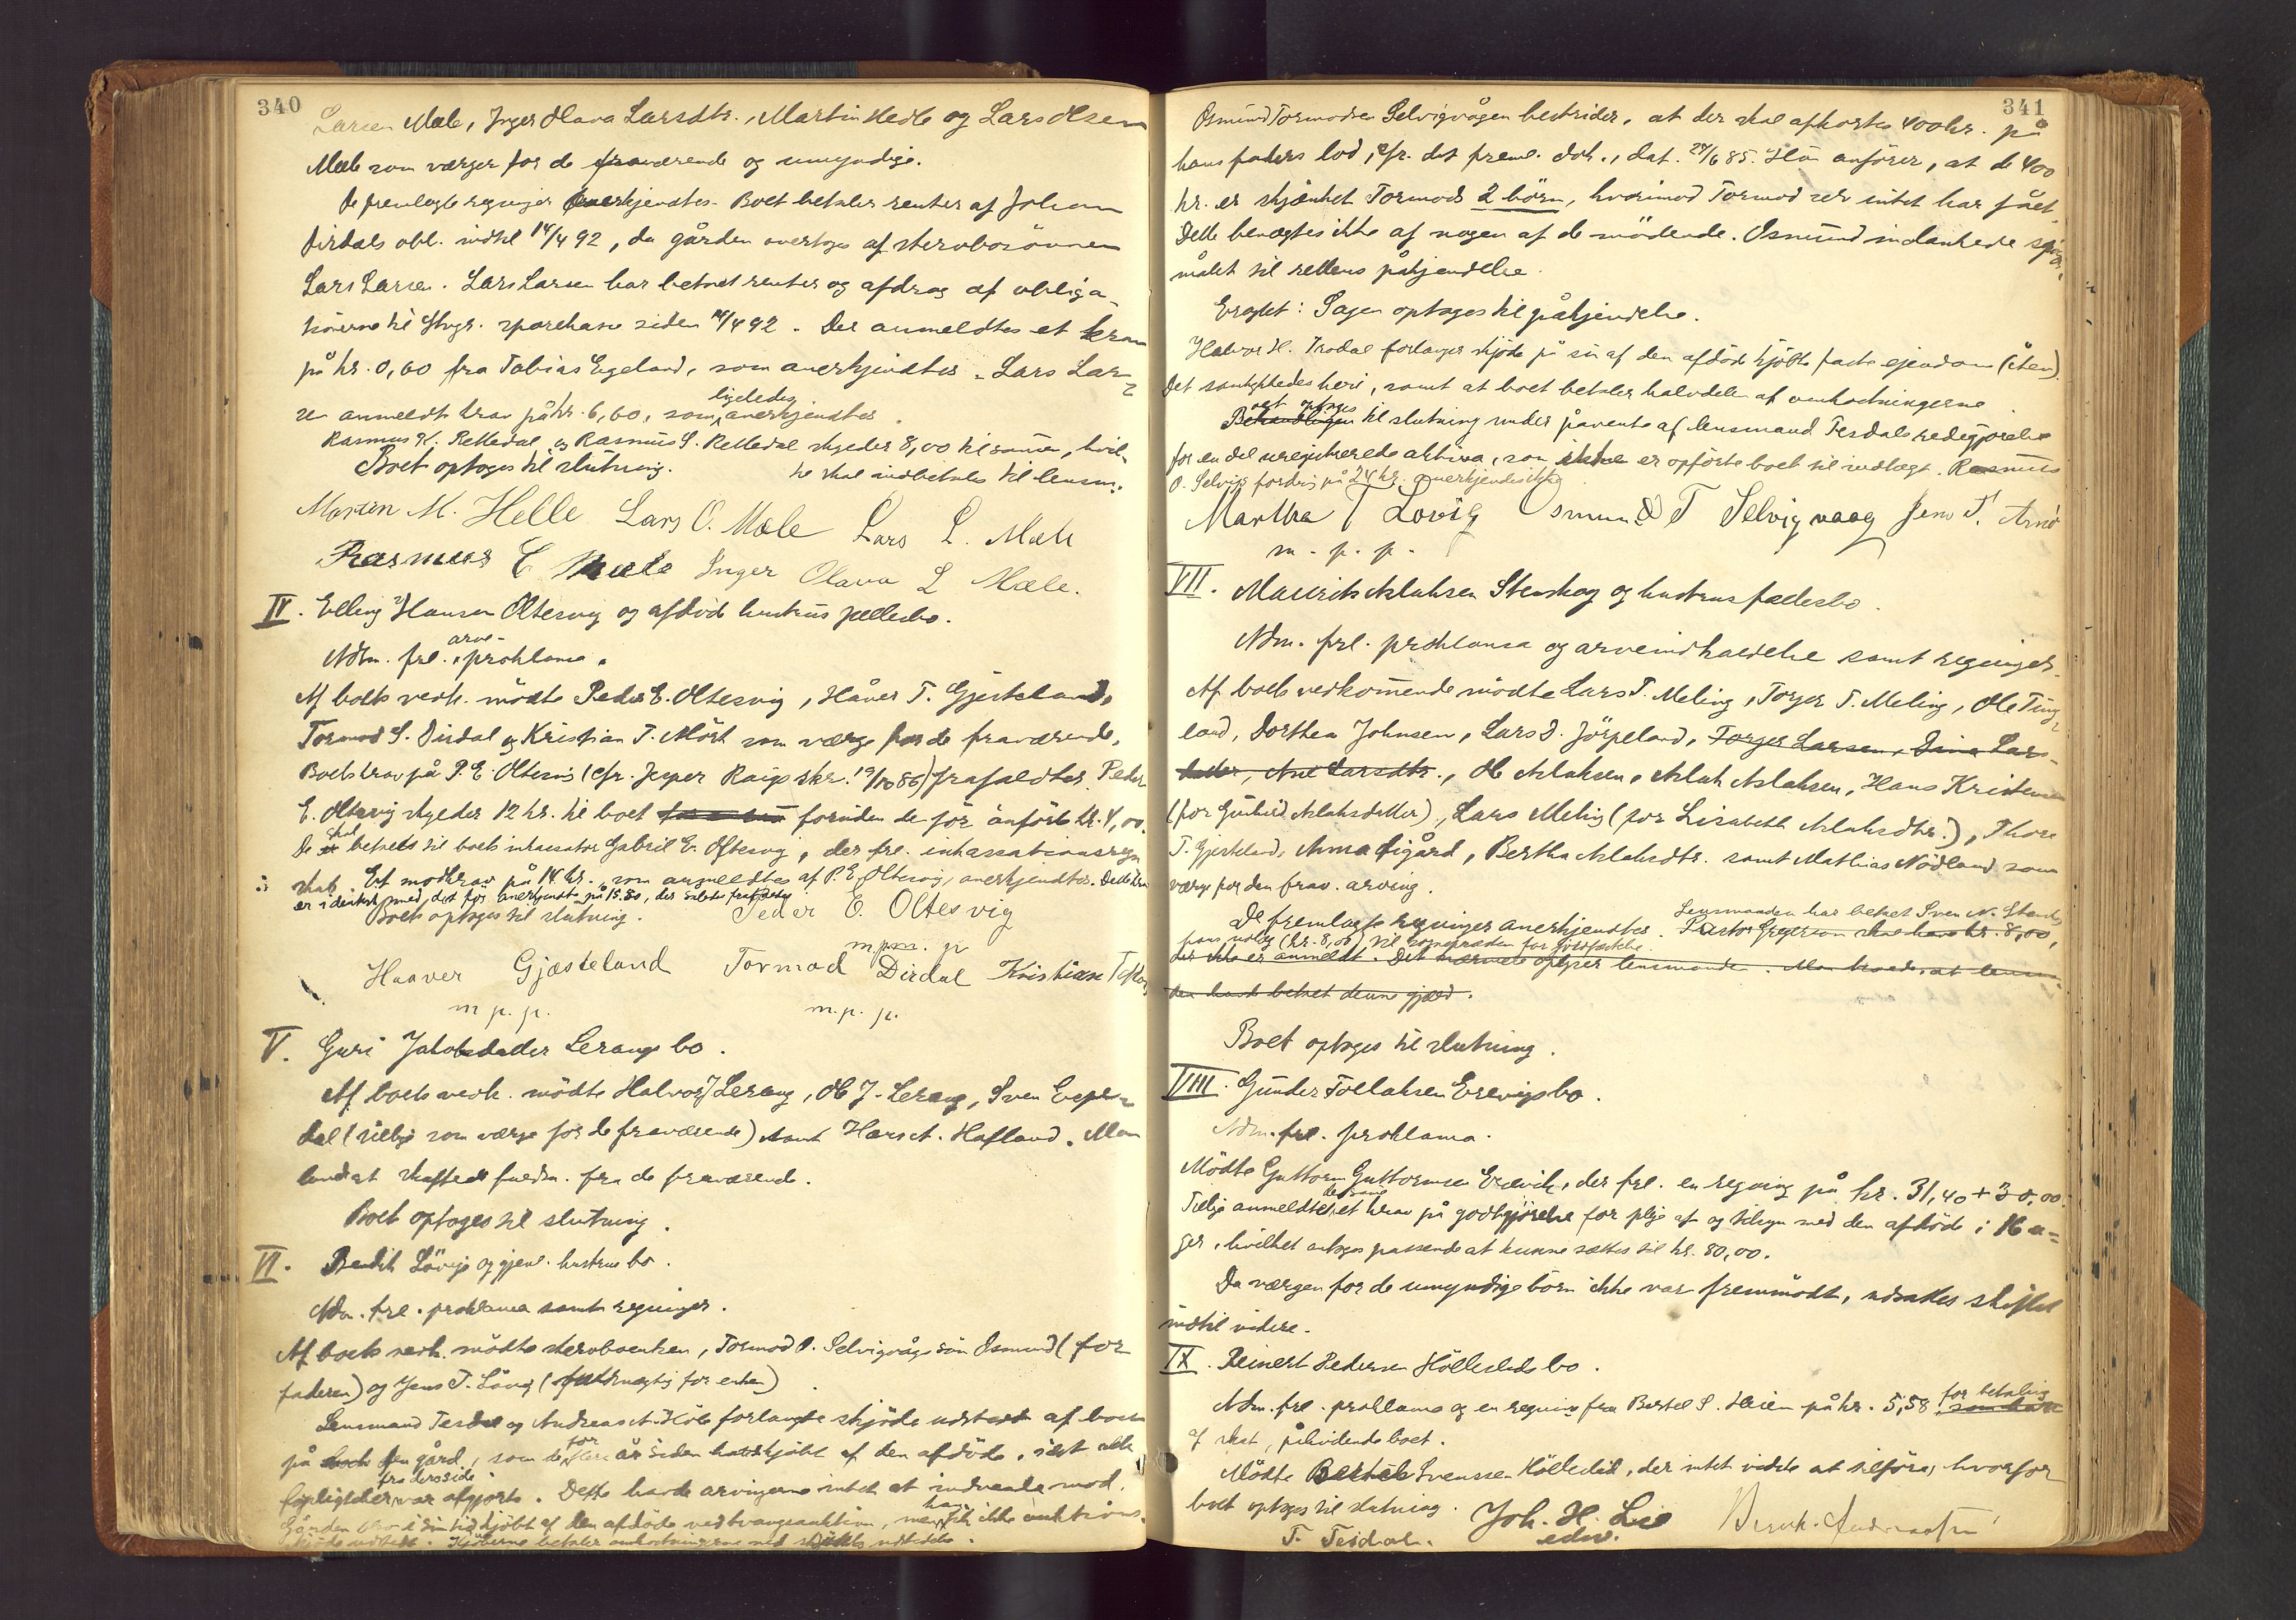 340
Larsen Mæle, Inger Olava Larsdtr., Martin Helle og Lars Olsen
Mæle som værger for de fraværende og umyndige.
De fremlagte regninger anerkjendtes. Boet betaler renter af Johan
Dirdals obl. indtil 14/4 92, da gården overtoges af stervbosönnen
Lars Larsen. Lars Larsen har betalt renter og afdrag af obliga-
tionerne til Stvgr. sparekasse siden 14/4 92. Der anmeldtes et krav
på kr. 0,60 fra Tobias Egeland, som anerkjendtes. Lars Lar-
sen anmeldte krav på kr. 6,60, som ligeledes anerkjendtes.
Rasmus K. Rettedal og Rasmus S. Rettedal skylder 8,00 til sammen, hvil-
ke skal indbetales til lensm.
Boet optoges til slutning.
Morten M. Helle Lars O. Mæle Lars L. Mæle
Rasmus Mæle Inger Olava L Mæle.
IV. Elling Hansen Oltesvig og afdød hustrus fællesbo.
Adm. frl. arve-proklama.
Af boets vedk. mødte Peder E. Oltesvig, Håver T. Gjesteland,
Tormod S. Dirdal og Kristian T. som værge for de fraværende.
Boets krav på P. E. Oltesvig (cfr. Jesper skr. 19/10 86) frafaldtes. Peder
E. Oltesvig skylder 12 kr. til boet foruden de før anførte kr. 4,00.
De skal betales til boets inkassator Gabriel E. Oltesvig, der frl. inkassationsregn-
skab. Et modkrav på 14 kr., som anmeldtes af P. E. Oltesvig, anerkjendtes. Dette krav
er identisk med det før anerkjendte på 15.80, der således frafaldes
Boet optoges til slutning.
Peder E. Oltesvig
m. p. p.
Haaver Gjæsteland Tormod Dirdal Kristian T
m. p. p. m. p. p.
V. Guri Jakobsdatter Lerangs bo.
Af boets vedk. mødte Halvor J Lerang, Ole J. Lerang, Sven Espe-
dal (tillige som værge for de fraværende) samt Hans A. Hafland. Man
lovd at skaffede fuldm. fra de fraværende.
Boet optoges til slutning.
VI. Bendik Løvigs og gjenl. hustrus bo.
Adm. frl. proklama samt regninger.
Af boets vedk. mødte stervboenken, Tormod O. Selvigvågs sön Osmund (for
faderen) og Jens T. Løvig (fuldmægtig for enken)
Lensmand Tesdal og Andreas A. Hole forlangte skjöde udstedt af boet
på den gård, som de for flere år siden havde kjöbt af den afdöde, idet alle
forpligtelser fra deres side var afgjorte. Dette havde arvingerne intet at indvende mod.
Gården blev i sin tid kjöbt af den afdöde ved tvangsauktion, men han fik ikke auktions-
skjöde udstedt. Kjöberne betaler omkostningerne ved skjödets udstedelse.
341
Osmund Tormodsen Selvigvågen bestrider, at der skal afkortes 400 kr. på
hans faders lod, cfr. det freml. dok., dat. 24/6 85. Han anförer, at de 400
kr. er skjænket Tormods 2 börn, hvorimod Tormod selv intet har fået.
Dette benægtes ikke af nogen af de mödende. Osmund indankede spörgs-
målet til rettens påkjendelse.
Eragtet: Sagen optoges til påkjendelse.
Halvor H. Trodal forlanger skjöde på sin af den afdöde kjöbte faste ejendom (åker).
Det samtykkedes heri, samt at boet betaler halvdelen af omkostningerne
Boet optoges til slutning under påvente af lensmand Tesdals redegjørelse
for en del uregistrerede aktiva, som er opförte boet til indtægt. Rasmus
O. Selvigs fordring på 24 kr. anerkjendes ikke
Martha T Lovig Osmund T Selvigvaag Jens T.
m. p. p.
VII. Maurits Aslaksen Stenskog og hustrus fællesbo.
Adm. frl. proklama og arveindkaldelse samt regninger.
Af boets vedkommende mödte Lars T. Meling, Torger T. Meling, Ole Ting-
land, Dorthea Johnsen, Lars D. Jörpeland, Torger Larsen, Lars-
datter, Larsdtr., Ole Aslaksen, Aslak Aslaksen, Hans Kristensen
(for Gunhild Aslaksdatter), Lars Meling (for Lisabeth Aslaksdtr.), Thore
T. Gjesteland, Anna Eigård, Bertha Aslaksdtr. samt Mathias Nödland som
værge for den frav. arving.
De fremlagte regninger anerkjendtes. Lensmanden har betalt Sven N. Stens-
Pastor Gregersen skal have kr. 8,00,
der ikke er anmeldt. Det nærmere oplyser lensmanden. Man troede, at lensm.
den havde betalt denne gjæld.
Boet optoges til slutning.
VIII. Gunder Tollaksen Erevigs bo.
Adm. frl. proklama.
Mödte Guttorm Guttormsen Erevik, der frl. en regning på kr. 31,40 + 30,00.
Tillige anmeldte densamme et krav på godtgjörelse for pleje af og tilsyn med den afdöde i 16 u-
ger, hvilket antoges passende at kunne sættes til kr. 80,00.
Da værgen for de umyndige börn ikke var fremmödt, udsattes skiftet
indtil videre.
IX. Reinert Pedersen Hölleslids bo.
Adm. frl. proklama og en regning fra Bertel S. Heien på kr. 5,58 for betaling
af skat, påhvilende boet.
Mödte Bertel Svenssen Hölleslid, der intet vidste at tilföre, hvorfor
boet optoges til slutning.
T. Tesdal. Joh. H. Lie
edsv.